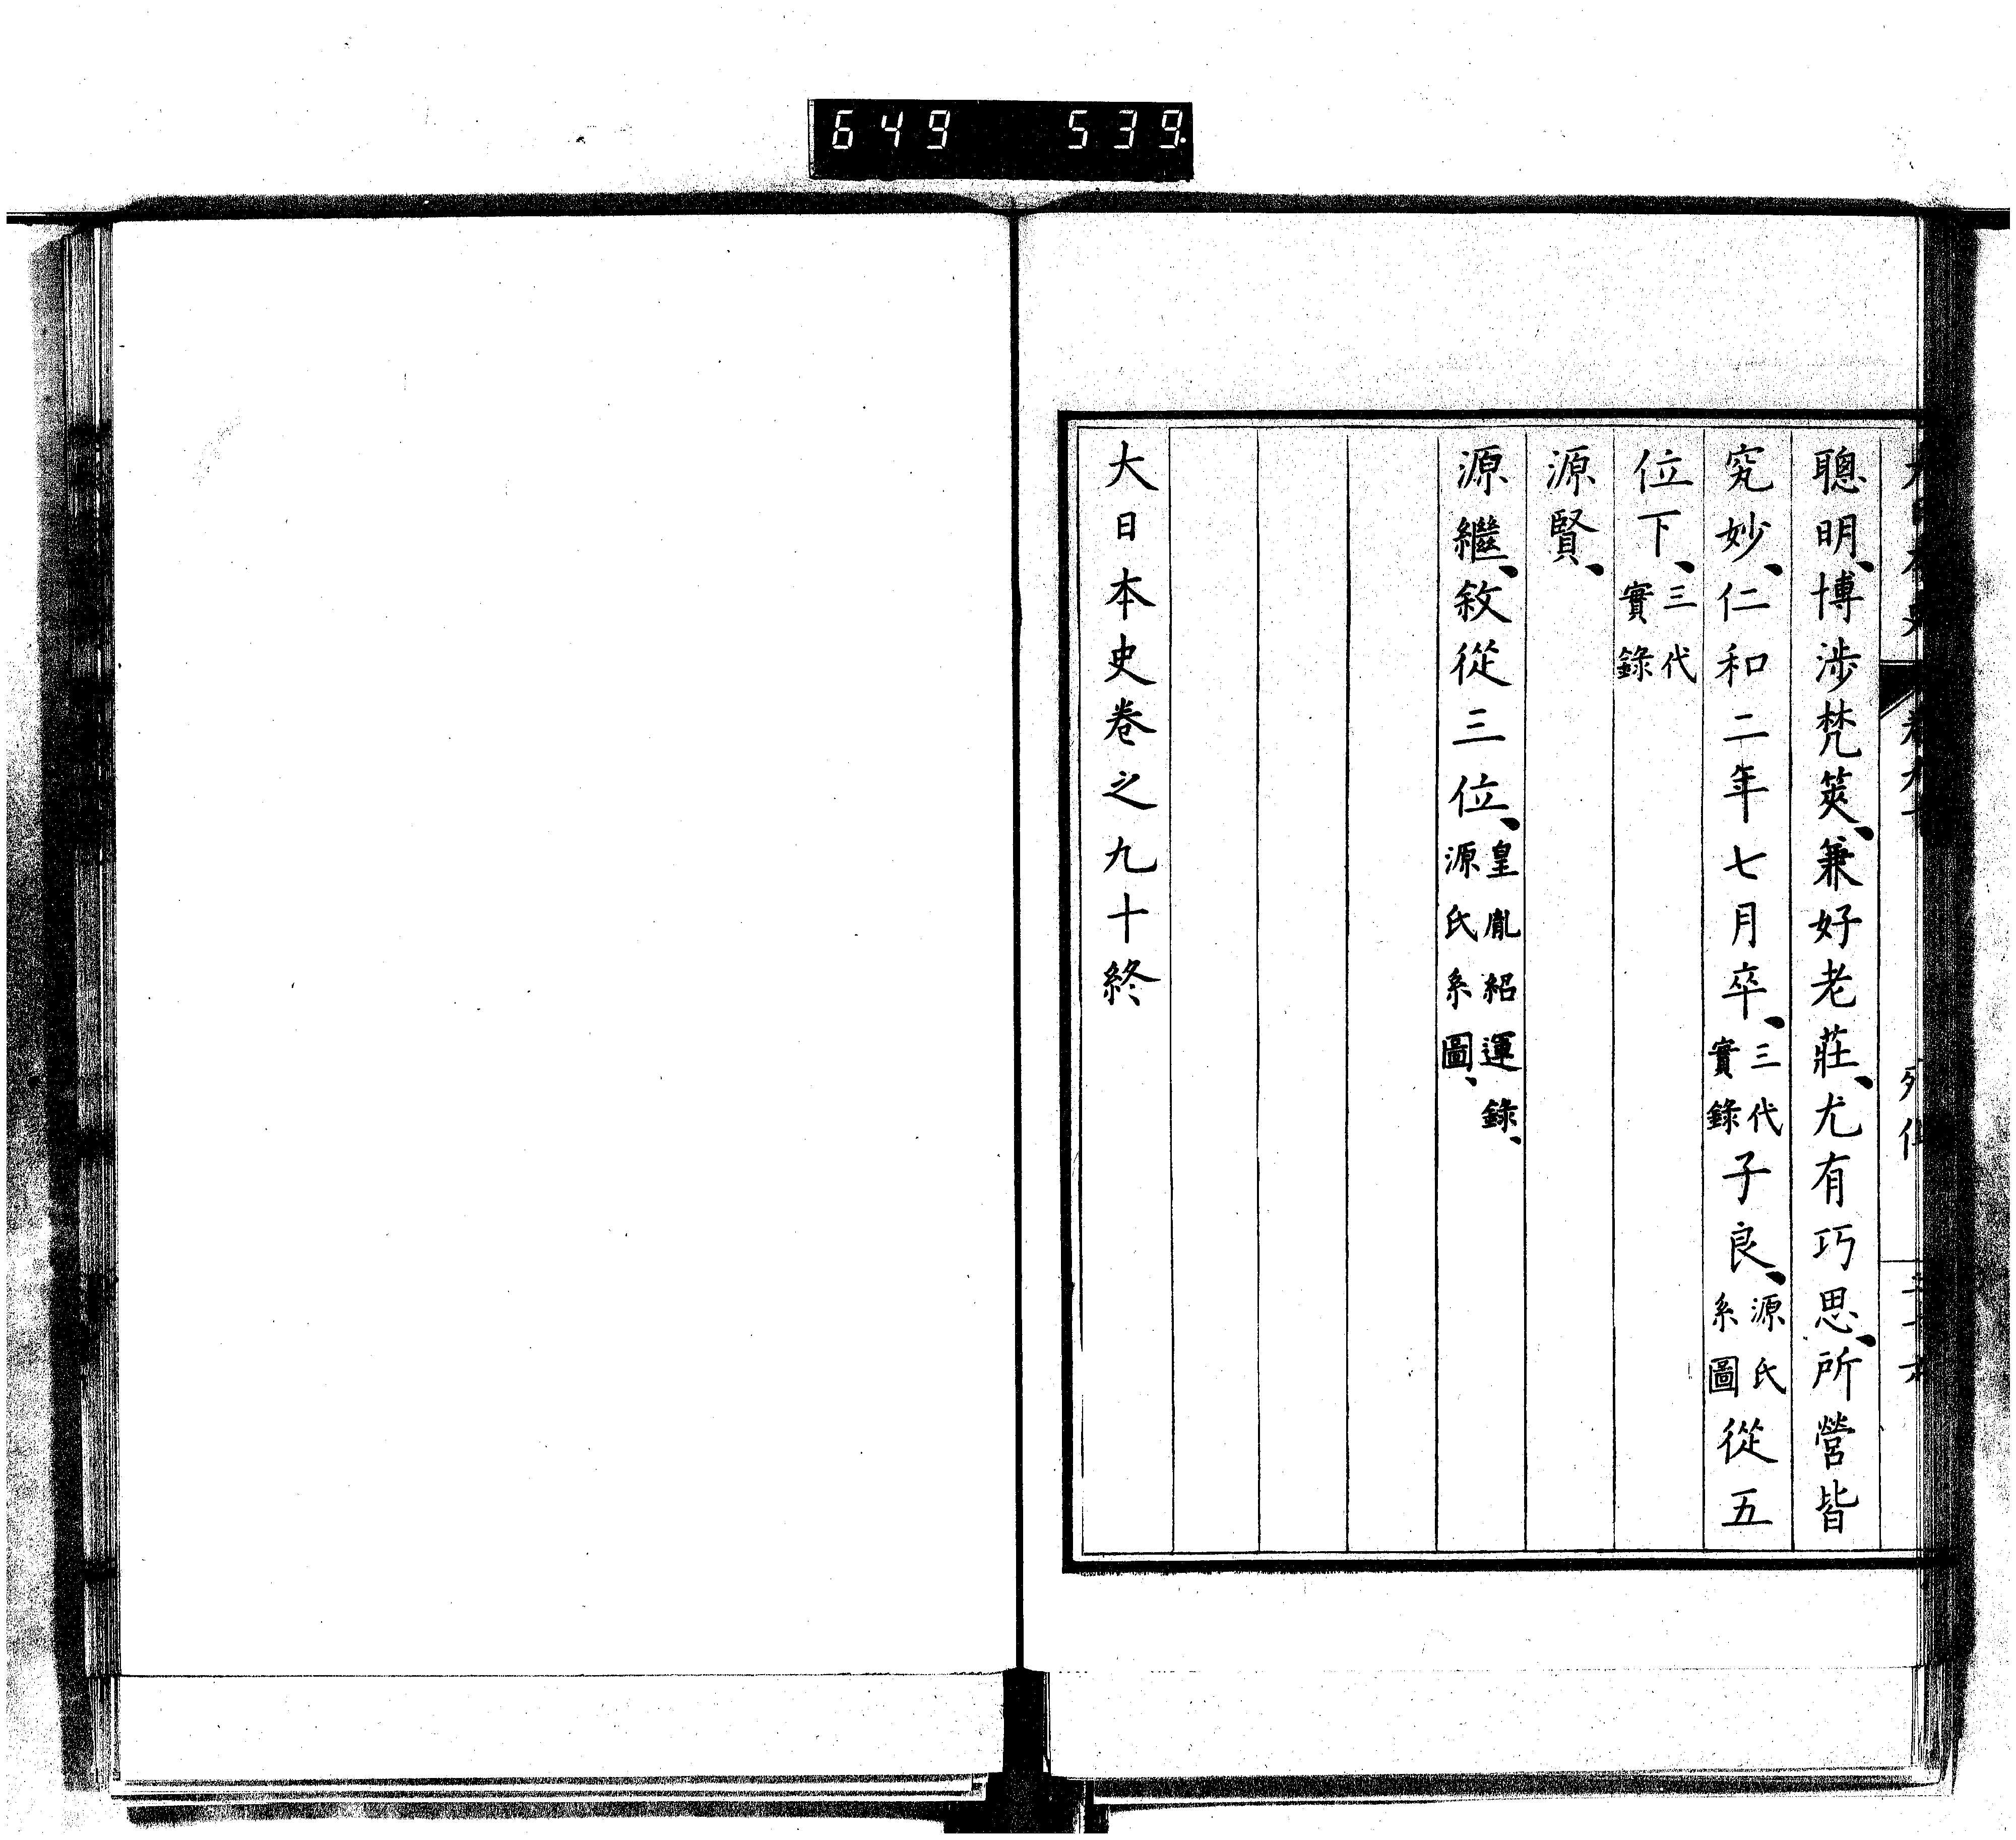 649 539
聰明、博涉梵筴、兼好老莊、尤有巧思、所營皆
究妙、仁和二年七月卒、三代實錄子良、源氏系圖從五
位下、三代實錄
源賢、
源繼、敘從三位、皇胤紹運錄、源氏系圖、
大日本史卷之九十終